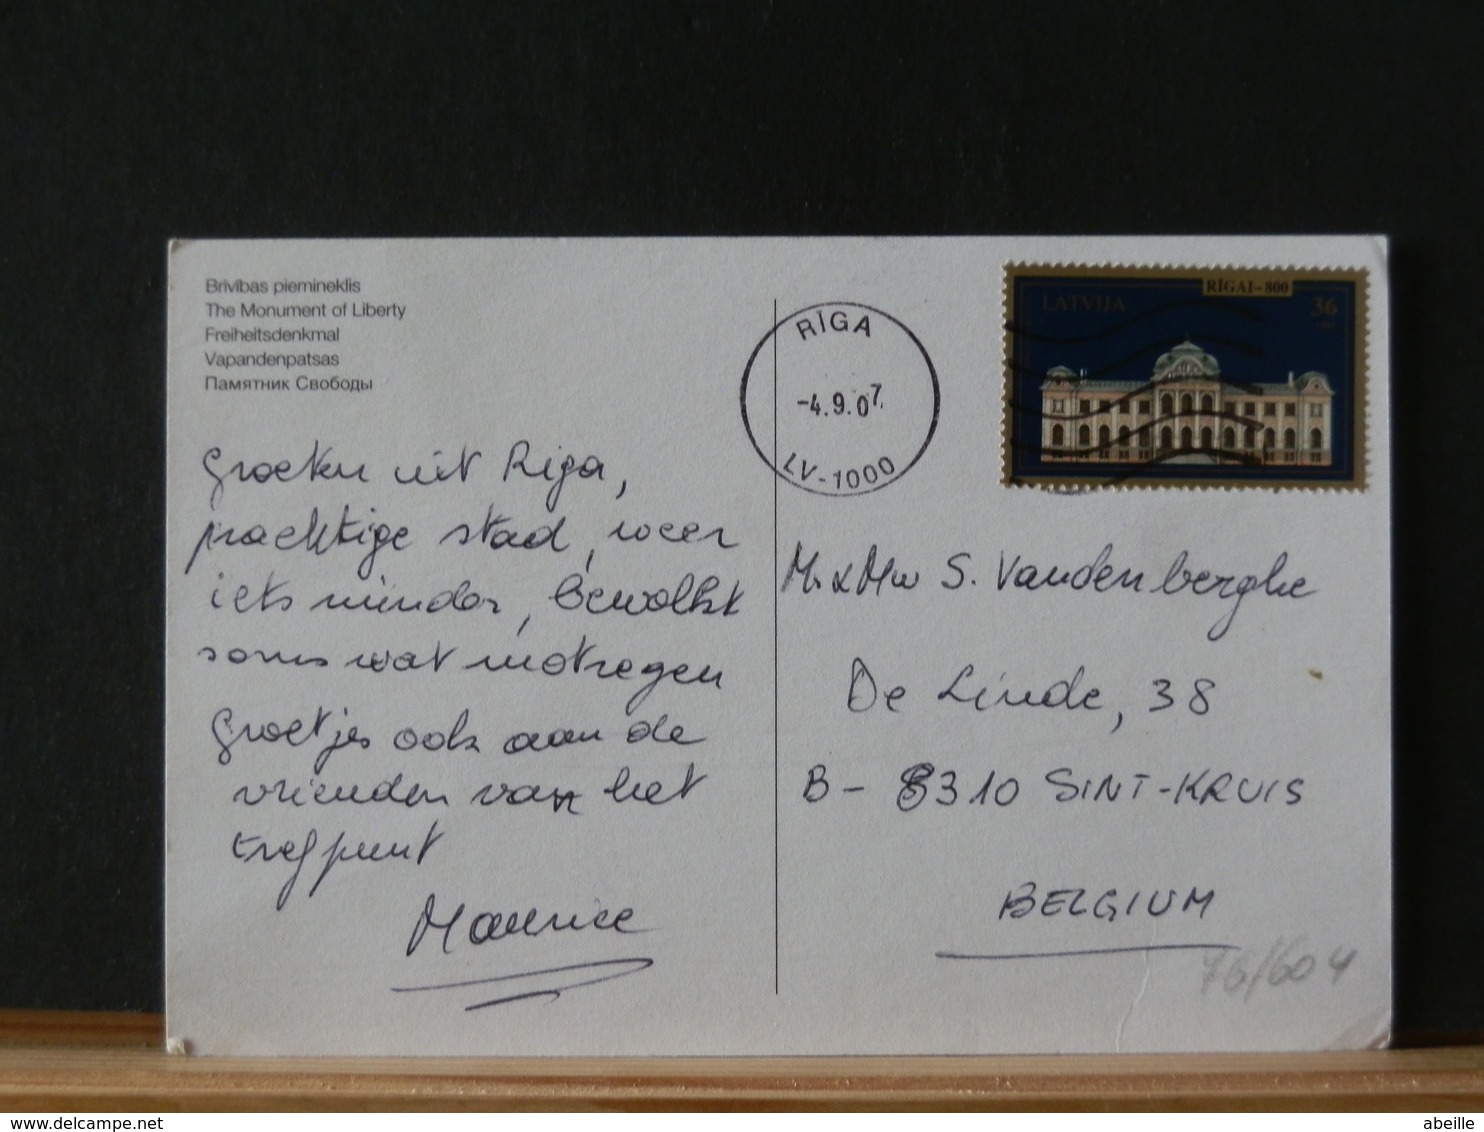 Brīvības piemineklis
The Monument of Liberty
Freiheitsdenkmal
Vapandenpatsas
Памятник Свободы
Groeten uit Riga,
prachtige stad, weer
iets minder, bewolkt
soms wat motregen
Groetjes ook aan de
vrienden van het
trefpunt
Maurice
RĪGA
-4.9.07.
LV-1000
RĪGAI-800
LATVIJA
36
Mr & Mw S. Vandenberghe
De Linde, 38
B- 8310 SINT-KRUIS
BELGIUM
76/604
delcampe.net
abeille